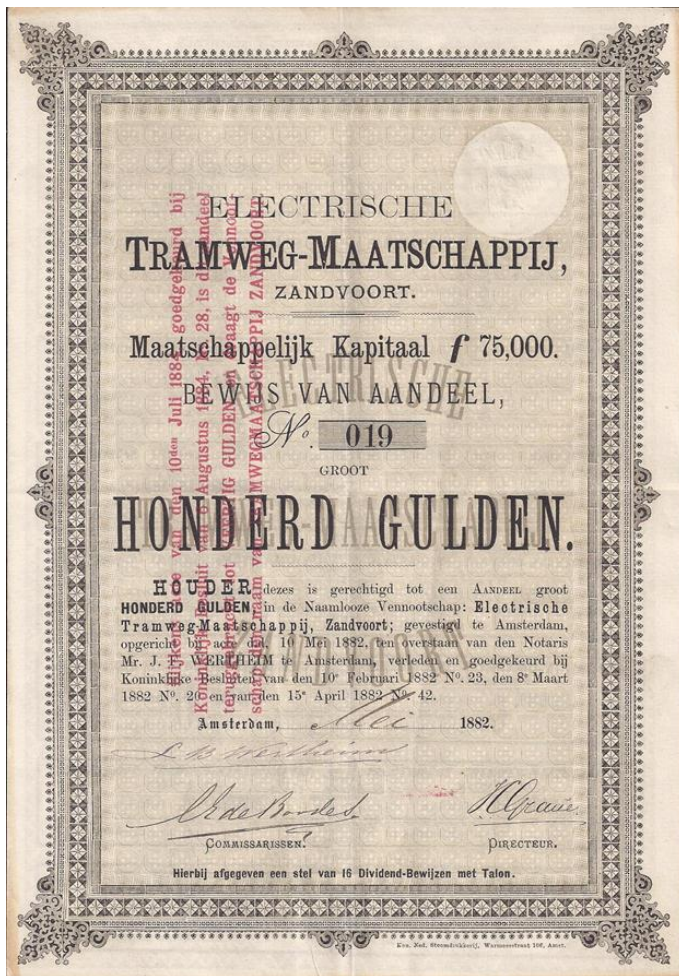 ELECTRISCHE
TRAMWEG-MAATSCHAPPIJ,
ZANDVOORT.
Maatschappelijk Kapitaal f 75,000.
BEWIJS VAN AANDEEL,
No. 019
GROOT
HONDERD GULDEN.
HOUDER dezes is gerechtigd tot een AANDEEL groot
HONDERD GULDEN, in de Naamlooze Vennootschap: Electrische
Tramweg-Maatschappij, Zandvoort; gevestigd te Amsterdam,
opgericht bij acte dd. 10 Mei 1882, ten overstaan van den Notaris
Mr. J. P. WERTHEIM te Amsterdam, verleden en goedgekeurd bij
Koninklijke Besluiten van den 10e Februari 1882 No. 23, den 8e Maart
1882 No. 20 en van den 15e April 1882 No. 42.
Amsterdam, Mei 1882.
Wertheim
COMMISSARISSEN.
DIRECTEUR.
Hierbij afgegeven een stel van 16 Dividend-Bewijzen met Talon.
Kon. Ned. Steendrukkerij, Warmoesstraat 106, Amst.
van den 10den Juli 1884, goedgekeurd bij
Koninklijk Besluit van 6 Augustus 1884, No. 28, is dit aandeel
tot GULDEN en draagt de Vennoot-
schap den naam van TRAMWEGMAATSCHAPPIJ ZANDVOORT.
ELECTRISCHE
TRAMWEG-MAATSCHAPPIJ
ZANDVOORT